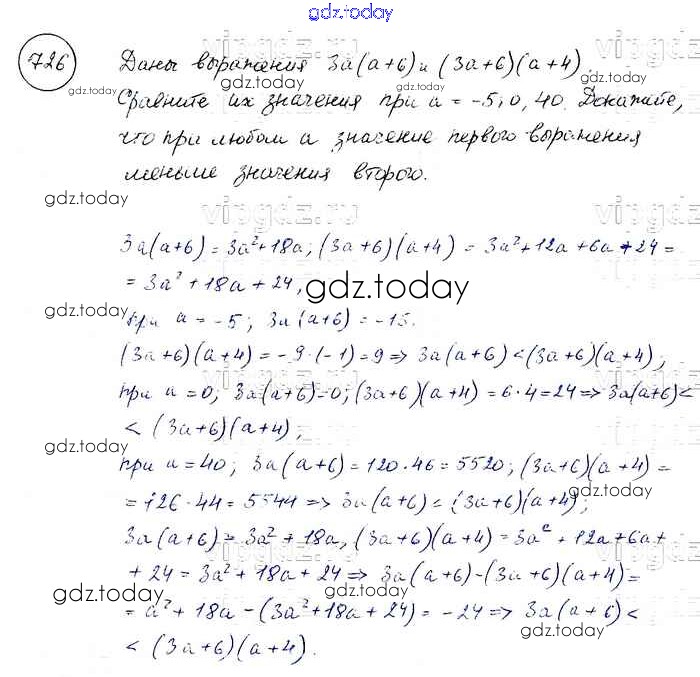 gdz.today
726 Даны выражения 3a(a+6) и (3a+6)(a+4).
gdz.today
Сравните их значения при a = -5; 0; 40. Докажите,
что при любом a значение первого выражения
меньше значения второго.
gdz.today
vipgdz.ru
3a(a+6) = 3a²+18a; (3a+6)(a+4) = 3a²+12a+6a+24 =
= 3a²+18a+24,
gdz.today
при a = -5; 3a(a+6) = -15.
(3a+6)(a+4) = -9·(-1) = 9 => 3a(a+6) < (3a+6)(a+4);
при a=0; 3a(a+6)=0; (3a+6)(a+4) = 6·4 = 24 => 3a(a+6) <
< (3a+6)(a+4);
gdz.today
при a = 40; 3a(a+6) = 120·46 = 5520; (3a+6)(a+4) =
= 126·44 = 5544 => 3a(a+6) < (3a+6)(a+4);
gdz.today
3a(a+6) = 3a²+18a, (3a+6)(a+4) = 3a²+12a+6a+
+24 = 3a²+18a+24 => 3a(a+6)-(3a+6)(a+4) =
gdz.today
= a²+18a-(3a²+18a+24) = -24 => 3a(a+6) <
gdz.today
< (3a+6)(a+4).